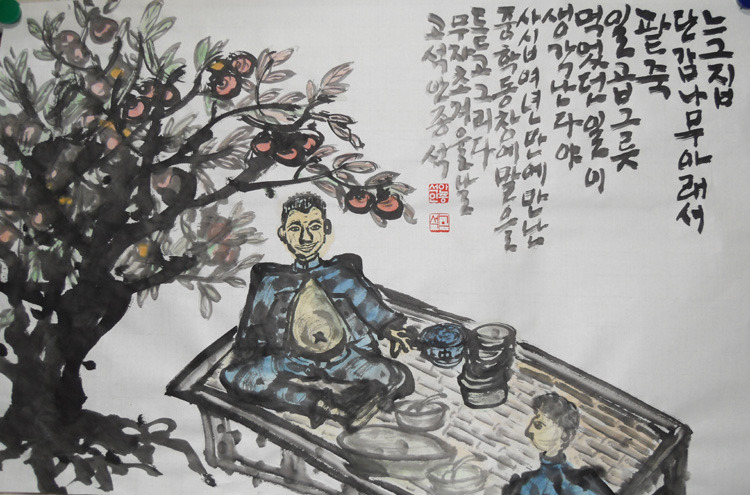 느그집
단감나무아래서
팥죽
일곱그릇
먹었던일이
생각난다야
사십여년만에만난
중학동창에말을
듣고그리다
무자초겨울날
고석안종석